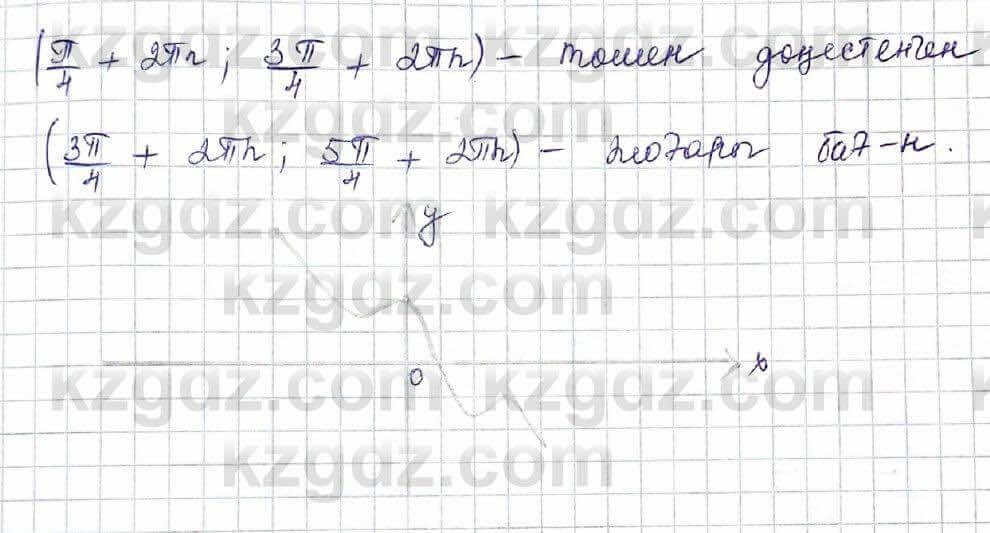 (π/4 + 2πn; 3π/4 + 2πn) – төмен дөңестенген
(3π/4 + 2πn; 5π/4 + 2πn) – жоғары бағ-н.
kzgdz.com kzgdz.com
y
kzgdz.com
0
x
kzgdz.com kzgdz.com
kzgdz.com